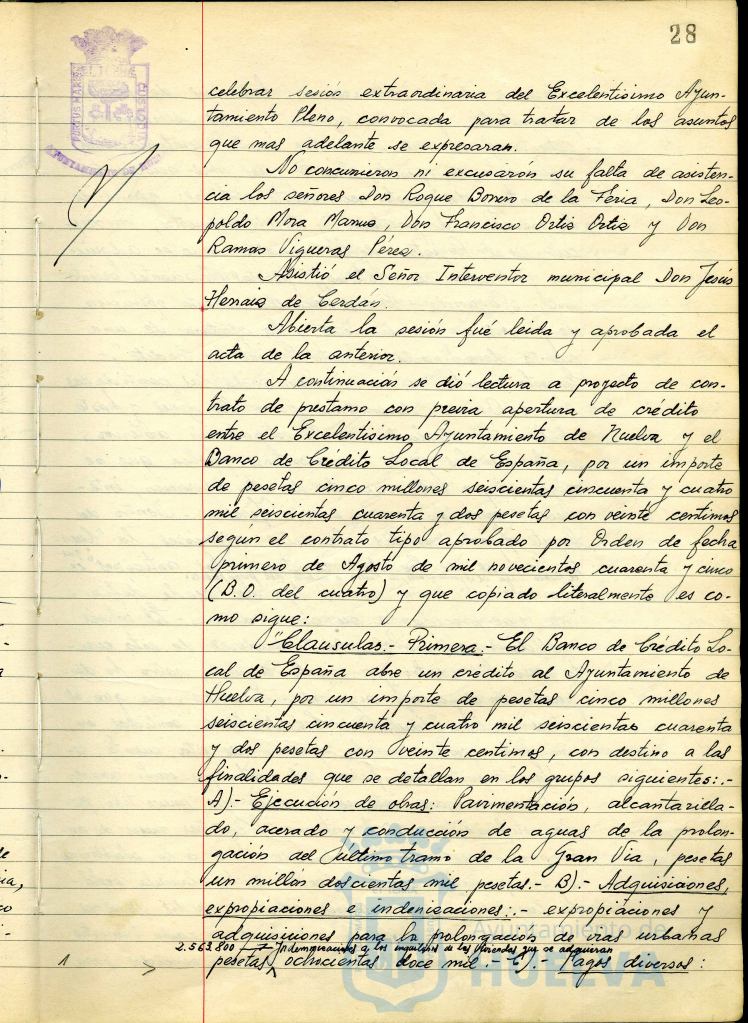 28
celebrar sesión extraordinaria del Excelentisimo Ayun-
tamiento Pleno, convocada para tratar de los asuntos
que mas adelante se expresaran.
No concurrieron ni excusarón su falta de asisten-
cia los señores Don Roque Bonero de la Feria, Don Leo-
poldo Mora Manus, Don Francisco Ortiz Ortiz y Don
Ramos Vigueras Pérez.
Asistió el Señor Interventor municipal Don Jesús
Henaiz de Cerdán.
Abierta la sesión fué leida y aprobada el
acta de la anterior.
A continuación se dió lectura a proyecto de con-
trato de prestamo con previa apertura de crédito
entre el Excelentisimo Ayuntamiento de Huelva y el
Banco de Crédito Local de España, por un importe
de pesetas cinco millones seiscientas cincuenta y cuatro
mil seiscientas cuarenta y dos pesetas con veinte centimos
según el contrato tipo aprobado por Orden de fecha
primero de Agosto de mil novecientos cuarenta y cinco
(B.O. del cuatro) y que copiado literalmente es co-
mo sigue:
"Clausulas.- Primera.- El Banco de Crédito Lo-
cal de España abre un crédito al Ayuntamiento de
Huelva, por un importe de pesetas cinco millones
seiscientas cincuenta y cuatro mil seiscientas cuarenta
y dos pesetas con veinte centimos, con destino a las
finalidades que se detallan en los grupos siguientes:.-
A).- Ejecución de obras: Pavimentación, alcantarilla-
do, acerado y conducción de aguas de la prolon-
gación del último tramo de la Gran Via, pesetas
un millón doscientas mil pesetas.- B).- Adquisiciones,
expropiaciones e indenizaciones:.- expropiaciones y
adquisiciones para la prolongación de vias urbanas
2.563.800 Indemnizaciones a los inquilinos de las viviendas que se adquieran
pesetas ochocientas doce mil.- C).- Pagos diversos:
Ayuntamiento de
HUELVA